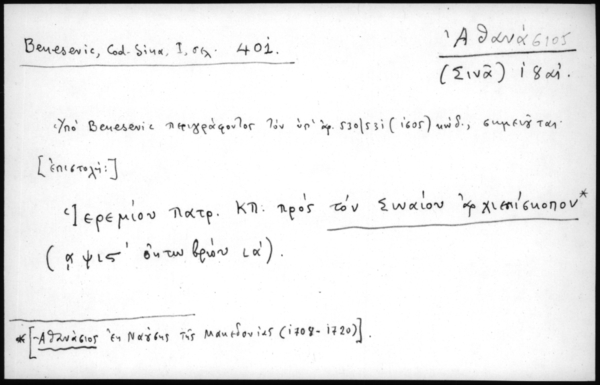 Benesevic, Cod. Sina. I, σελ. 401.
Ἀθανάσιος
(Σινᾶ) 18αι.
Ὑπό Benesevic περιγράφοντος τόν ὑπ' ἀρ. 530/531 (1605) κώδ., σημειοῦται
[ἐπιστολή:]
Ἱερεμίου πατρ. ΚΠ. πρός τόν Σιναίου ἀρχιεπίσκοπον*
(αψις' ὀκτωβρίου ια').
*[-Ἀθανάσιος ἐκ Ναούσης τῆς Μακεδονίας (1708-1720)].